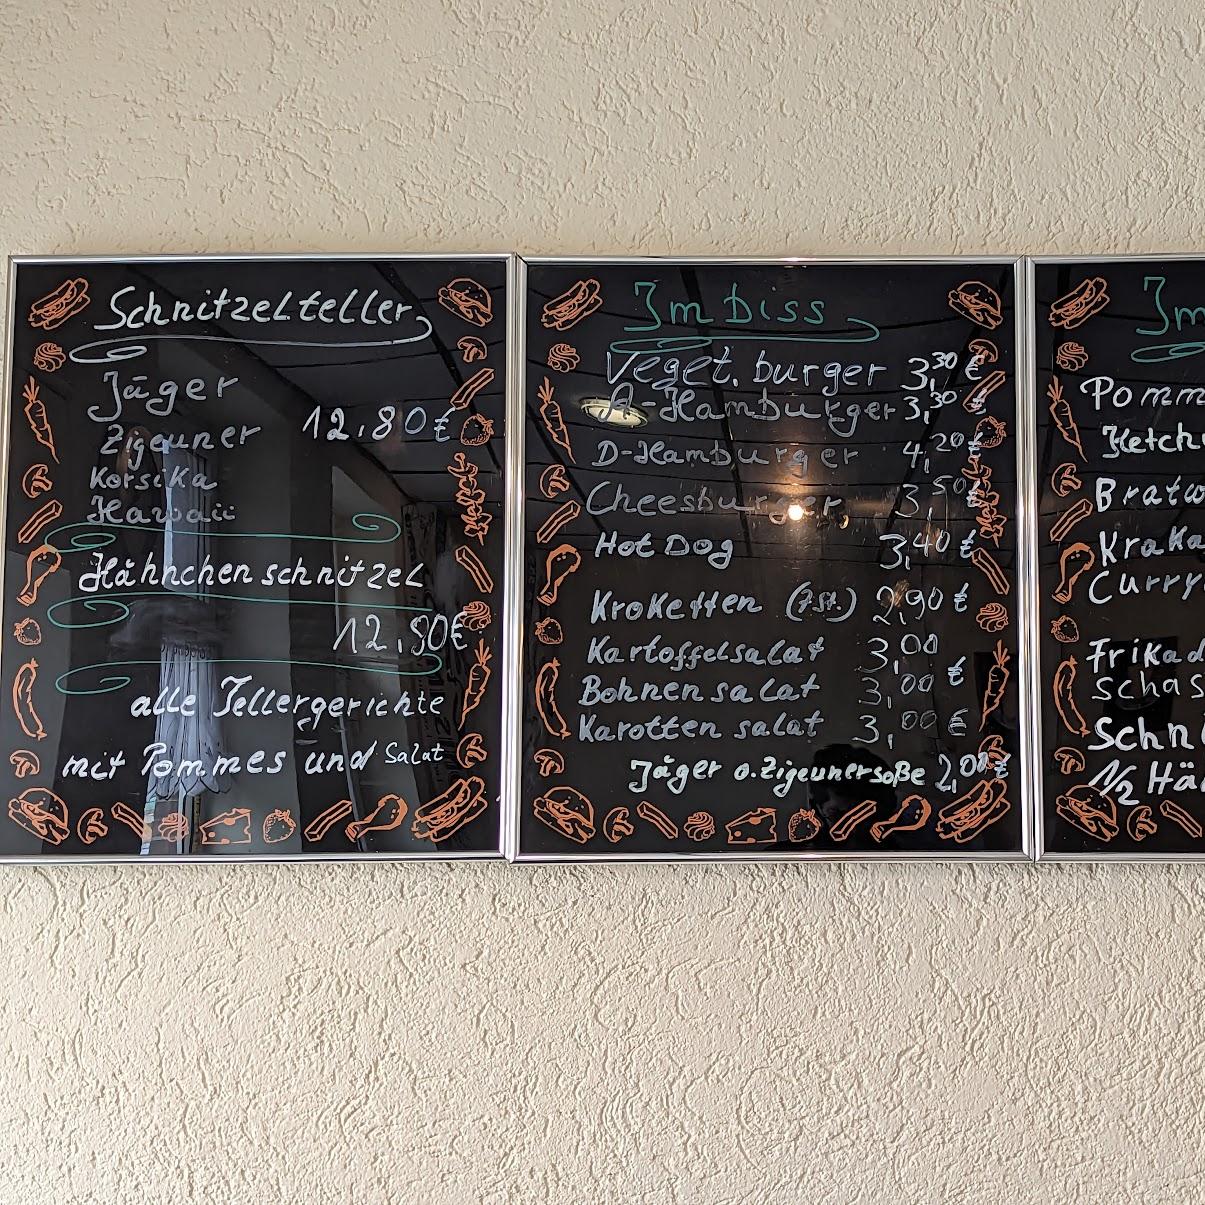 Schnitzelteller
Jäger
Zigeuner 12,80€
Korsika
Hawaii
Hähnchenschnitzel
12,80€
alle Tellergerichte
mit Pommes und Salat
Imbiss
Veget. burger 3,30 €
A-Hamburger 3,30 €
D-Hamburger 4,20 €
Cheesburger 3,50 €
Hot Dog 3,40 €
Kroketten (7 St.) 2,90 €
Kartoffelsalat 3,00
Bohnensalat 3,00 €
Karottensalat 3,00 €
Jäger o. Zigeunersoße 2,00 €
Im
Pomm
Ketchu
Bratw
Kraka
Curry
Frikad
Schas
Schni
1/2 Hä